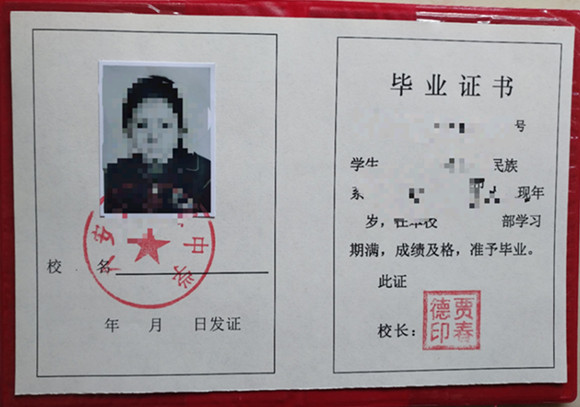 安 中学
校 名
年 月 日发证
毕业证书
号
学生 民族
系 现年
岁，在本校 部学习
期满，成绩及格，准予毕业。
此证
校长：
贾春德印